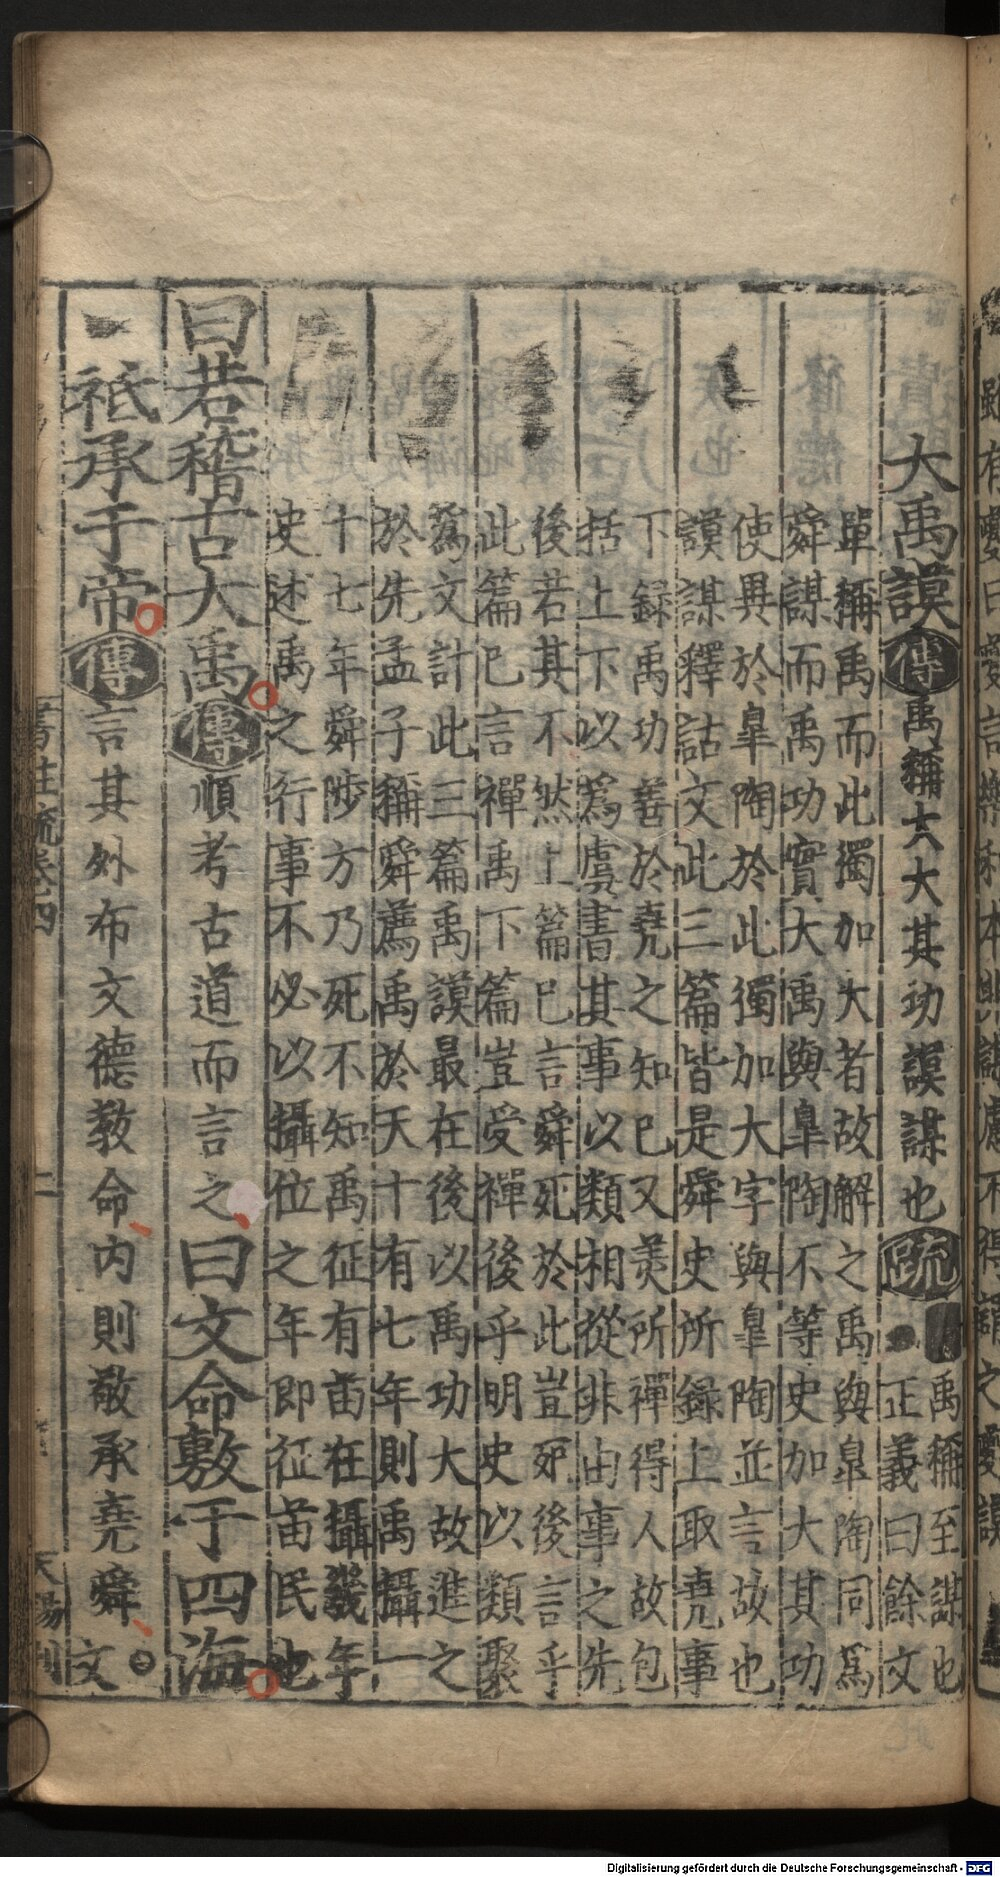 雖有夔曰夔言樂和本與謀慮不得謂之夔謨
大禹謨傳禹稱大大其功謨謀也疏禹稱至謀也
正義曰餘文
單稱禹而此獨加大者故解之禹與皐陶同爲
舜謀而禹功實大禹與皐陶不等史加大其功
使異於皐陶於此獨加大字與皐陶並言故也
謨謀釋詁文此三篇皆是舜史所録上取堯事
下録禹功善於堯之知已又美所禪得人故包
括上下以爲虞書其事以類相從非由事之先
後若其不然上篇已言舜死於此豈死後言乎
此篇已言禪禹下篇豈受禪後乎明史以類聚
爲文計此三篇禹謨最在後以禹功大故進之
於先孟子稱舜薦禹於天十有七年則禹攝一
十七年舜陟方乃死不知禹征有苗在攝幾年
史述禹之行事不必以攝位之年即征苗民也
曰若稽古大禹傳順考古道而言之曰文命敷于四海
祗承于帝傳言其外布文德教命内則敬承堯舜文
書註疏卷四 二
Digitalisierung gefördert durch die Deutsche Forschungsgemeinschaft - DFG